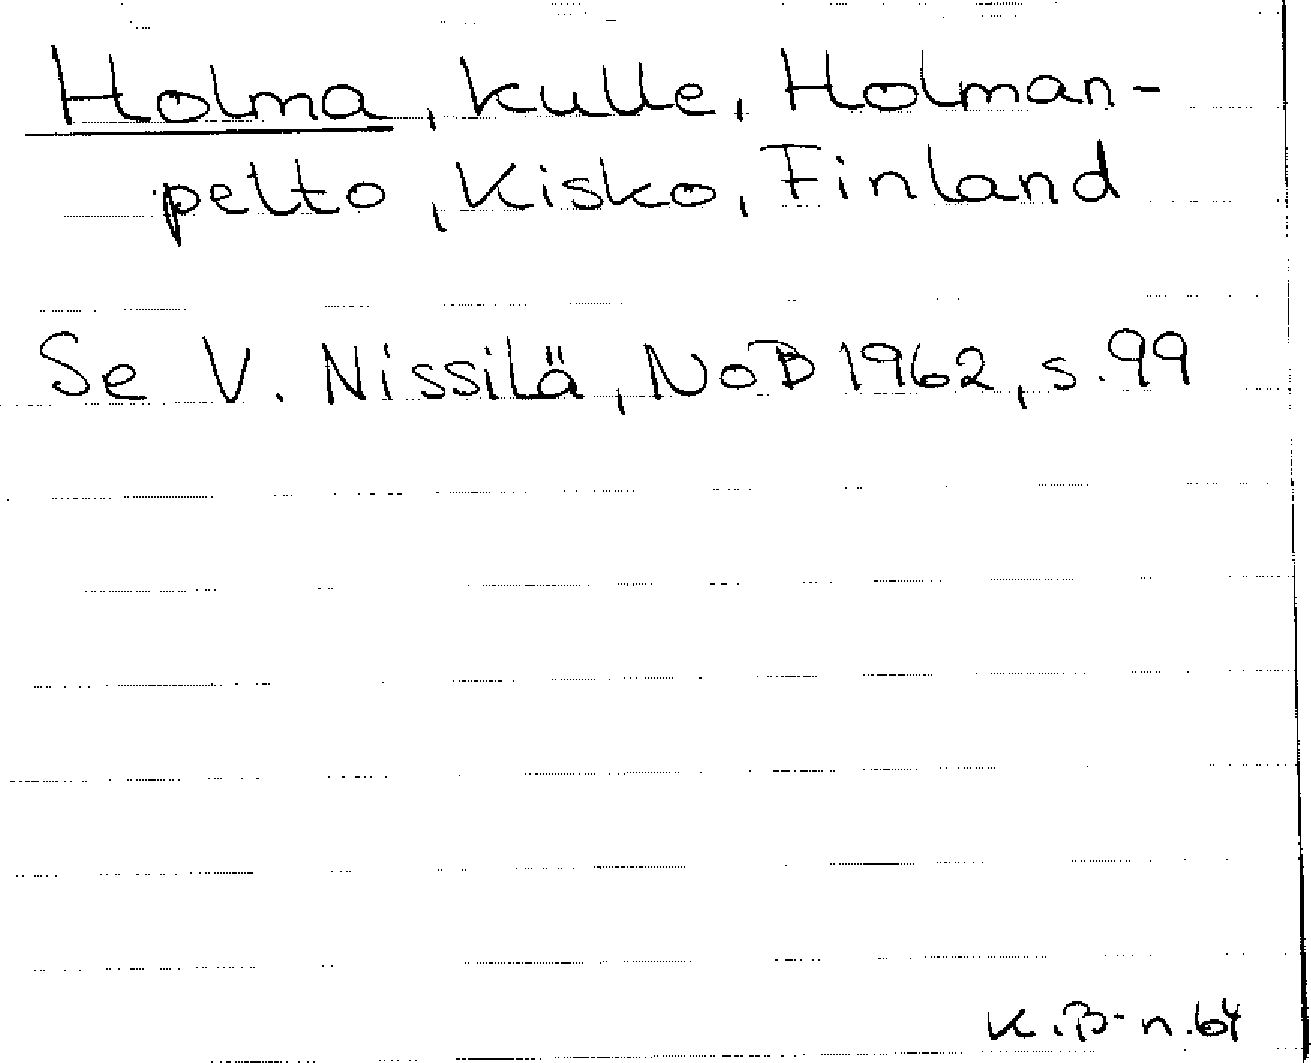 Holma, kulle, Holman-
pelto, Kisko, Finland
Se V. Nissilä, NoB 1962, s. 99
K.B-n. 64